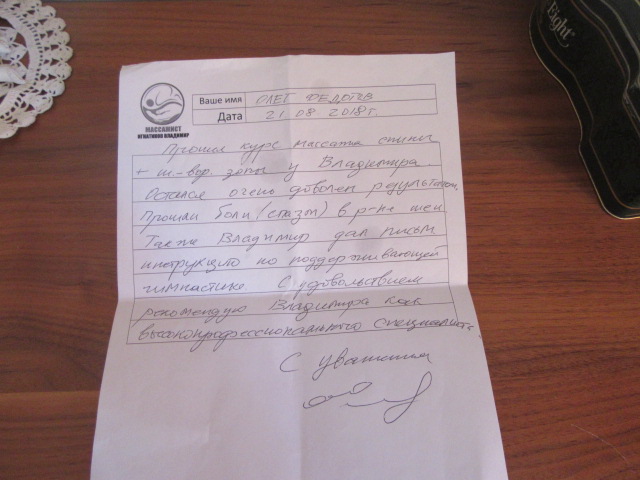 Eight
Ваше имя ОЛЕГ ФЕДОТОВ
Дата 21 08 2018 г.
МАССАЖИСТ
ИГНАТИКОВ ВЛАДИМИР
Прошел курс массажа спины
+ ш.-вор. зоны у Владимира.
Остался очень доволен результатом.
Прошли боли (спазм) в р-не шеи
Также Владимир дал письм.
инструкцию по поддерживающей
гимнастике С удовольствием
рекомендую Владимира как
высокопрофессионального специалиста.
С уважением